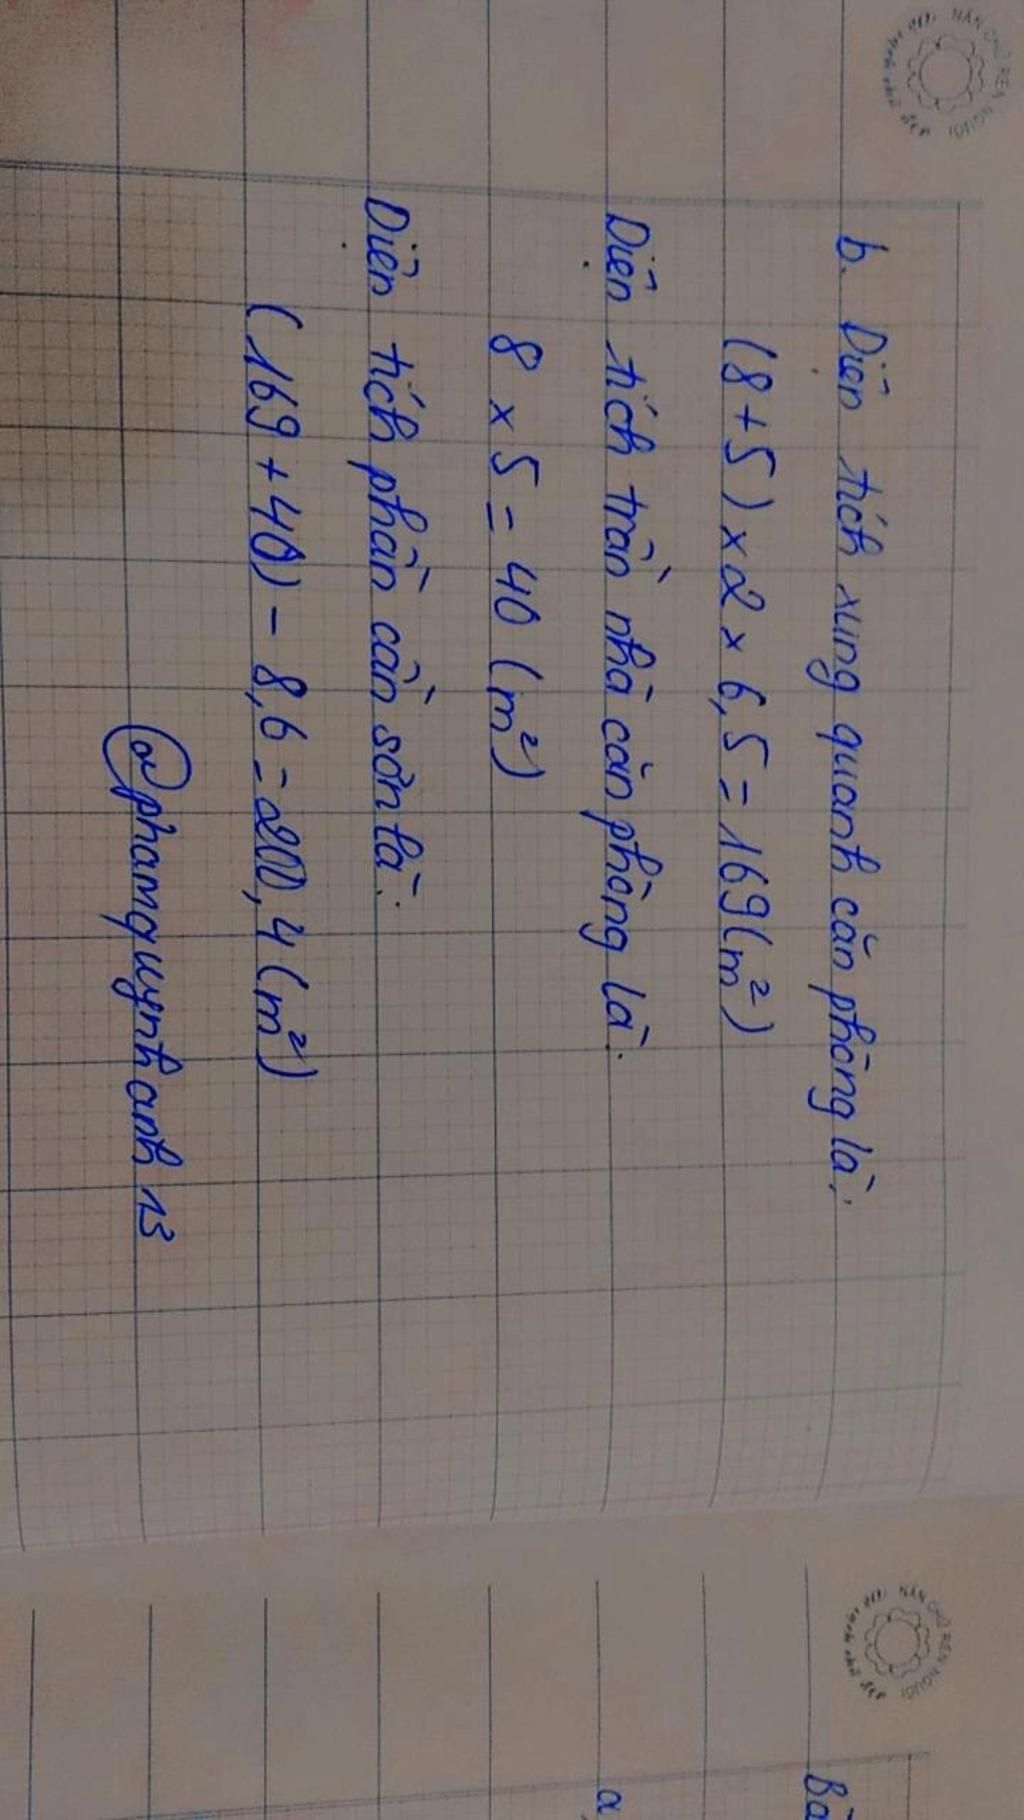 b. Diện tích xung quanh căn phòng là:
(8+5) x 2 x 6,5 = 169 (m²)
Diện tích trần nhà căn phòng là:
8 x 5 = 40 (m²)
Diện tích phần cần sơn là:
(169 + 40) - 8,6 = 200,4 (m²)
@phamquynhanh13
a